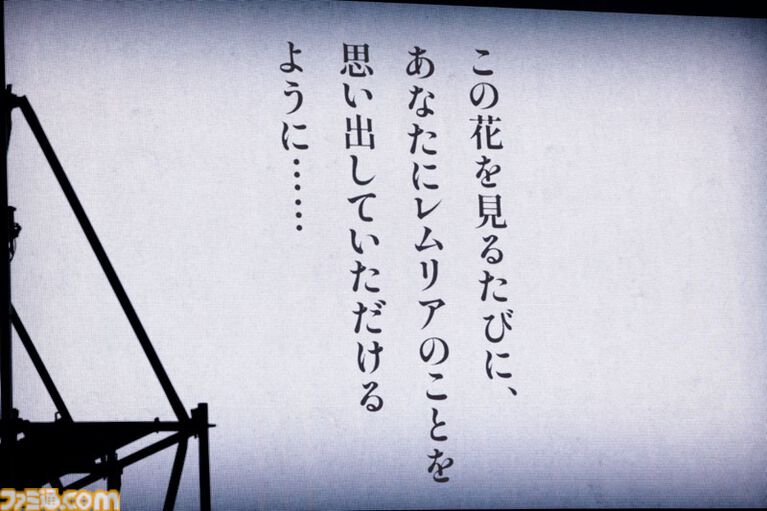 この花を見るたびに、
あなたにレムリアのことを
思い出していただける
ように……
ファミ通.com